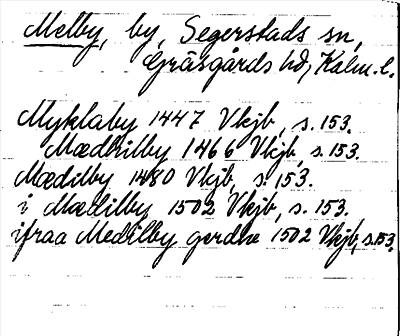 Melby, by, Segerstads sn,
Gräsgårds hd, Kalm. l.
Myklaby 1447 Vkjb, s. 153.
Mædhilby 1466 Vkjb, s. 153.
Mædilby 1480 Vkjb, s. 153.
i Mædilby 1502 Vkjb, s. 153.
ifraa Medilby gerdhe 1502 Vkjb, s. 153.